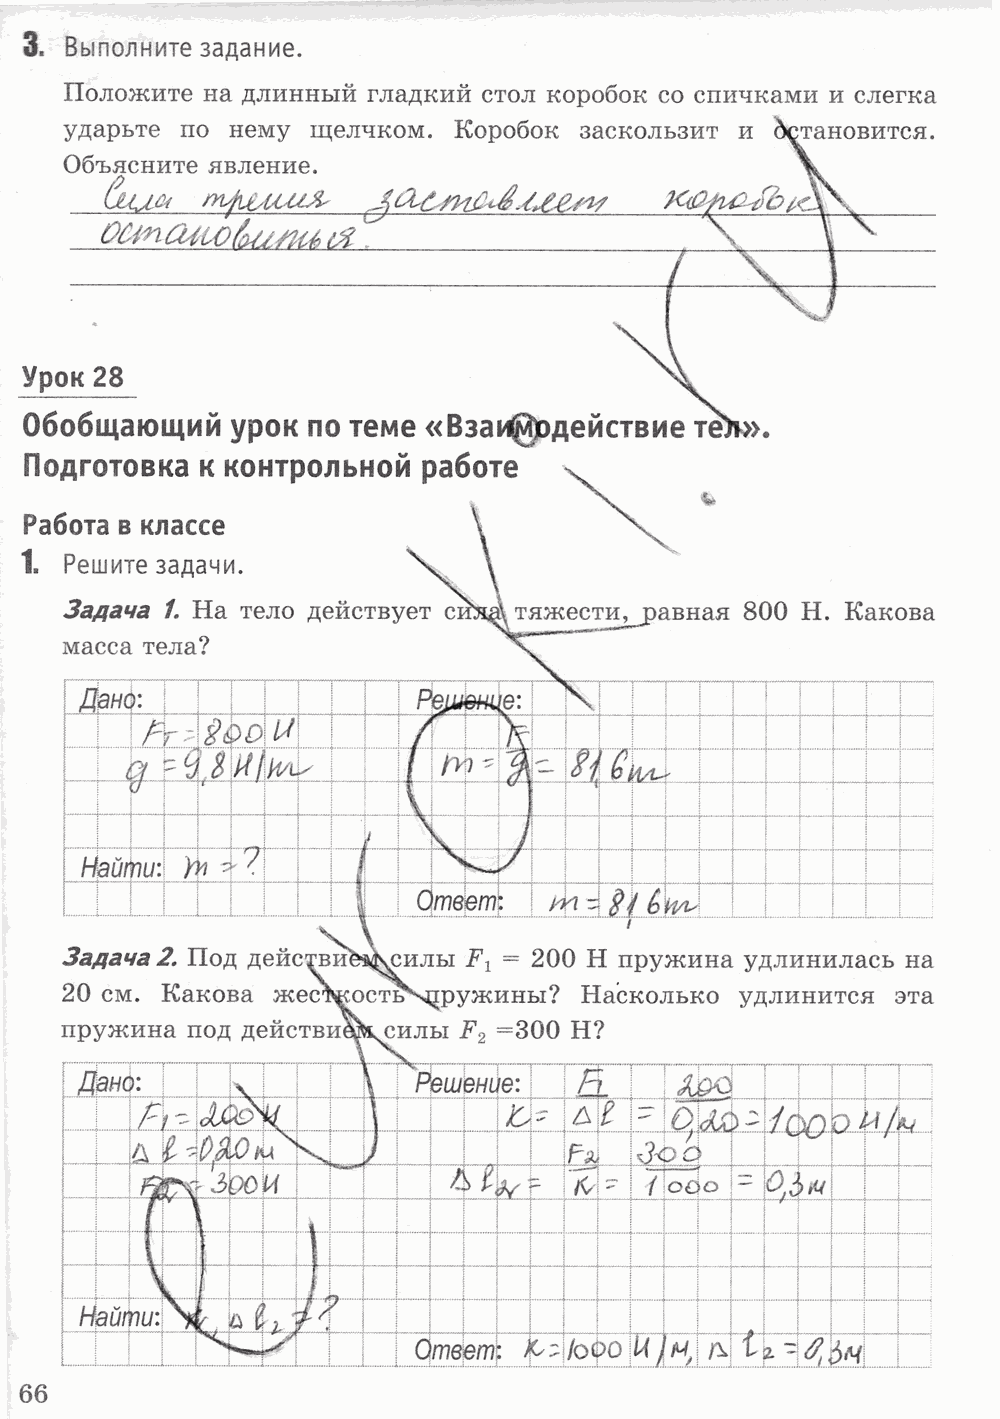 3. Выполните задание.
Положите на длинный гладкий стол коробок со спичками и слегка
ударьте по нему щелчком. Коробок заскользит и остановится.
Объясните явление.
Сила трения заставляет коробок
остановиться.
Урок 28
Обобщающий урок по теме «Взаимодействие тел».
Подготовка к контрольной работе
Работа в классе
1. Решите задачи.
Задача 1. На тело действует сила тяжести, равная 800 Н. Какова
масса тела?
Дано: Решение:
Fт = 800 Н
g = 9,8 Н/т m = F/g = 81,6 т
Найти: m = ?
Ответ: m = 81,6 т
Задача 2. Под действием силы F₁ = 200 Н пружина удлинилась на
20 см. Какова жесткость пружины? Насколько удлинится эта
пружина под действием силы F₂ =300 Н?
Дано: Решение:
F₁ = 200 Н K = F₁/Δl = 200/0,20 = 1000 Н/м
Δl = 0,20 м
F₂ = 300 Н Δl₂ = F₂/K = 300/1000 = 0,3 м
Найти: K, Δl₂ = ?
Ответ: K = 1000 Н/м, Δl₂ = 0,3 м
66